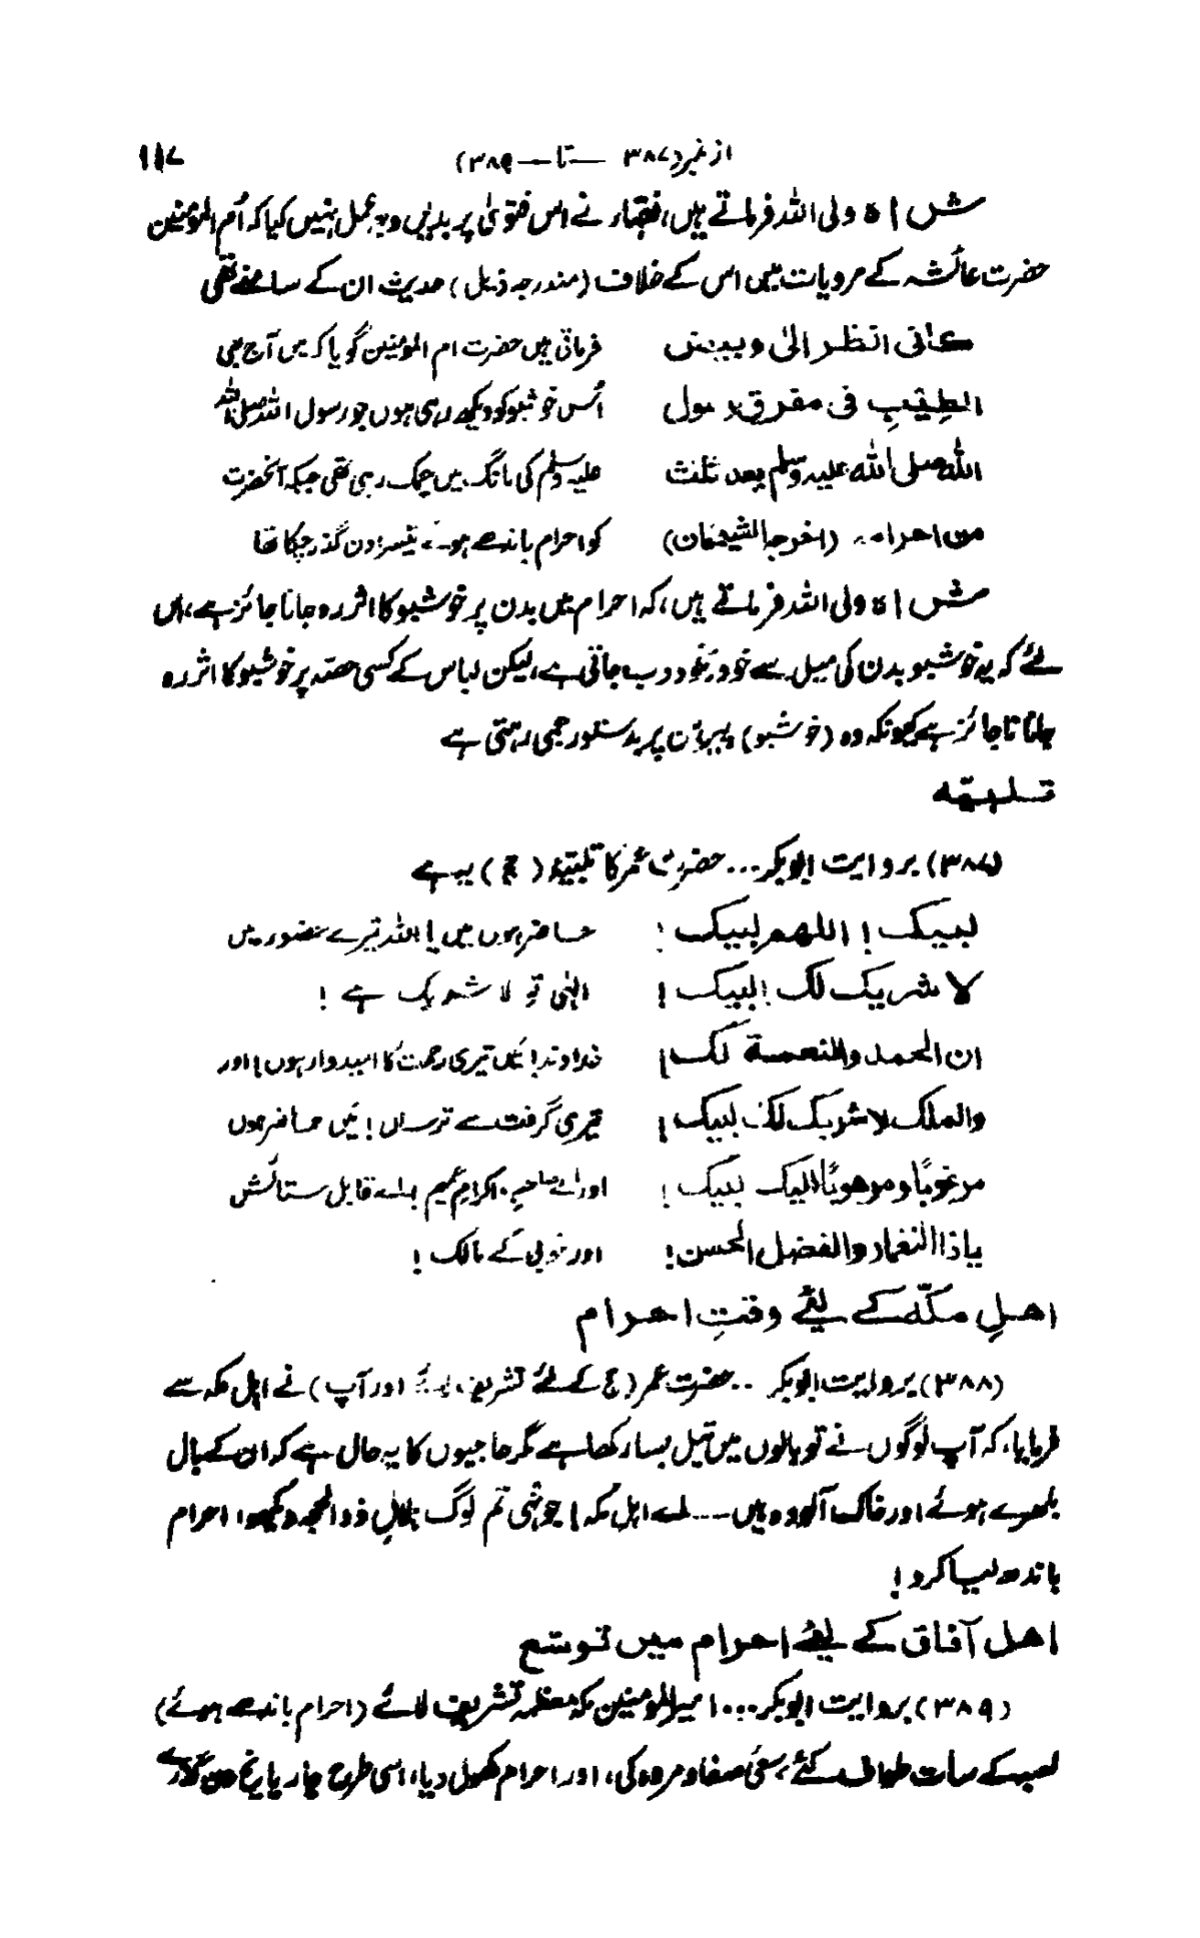 از نمبر (۳۸۷ — تا — ۳۸۹) ۱۱۷
شاہ ولی اللہ فرماتے ہیں، فقہاء نے اس فتویٰ پر بدیں وجہ عمل نہیں کیا کہ اُم المؤمنین
حضرت عائشہ کے مرویات میں اس کے خلاف (مندرجہ ذیل) حدیث ان کے سامنے تھی
کانی انظر الیٰ وبیص فرماتی ہیں حضرت ام المومنین گویا کہ میں آج بھی
الطِیبِ فی مفرق رسول اُس خوشبو کو دیکھ رہی ہوں جو رسول اللہ صلی اللہ
اللہ صلی اللہ علیہ وسلم بعد ثلث علیہ وسلم کی مانگ میں چمک رہی تھی جبکہ آنحضرت
من احرامہ (اخرجہ الشیخان) کو احرام باندھے ہوئے تیسرا دن گذر چکا تھا
شاہ ولی اللہ فرماتے ہیں، کہ احرام میں بدن پر خوشبو کا اثر رہ جانا جائز ہے، اس
لئے کہ یہ خوشبو بدن کی میل سے خود بخود دب جاتی ہے، لیکن لباس کے کسی حصّہ پر خوشبو کا اثر رہ
جانا ناجائز ہے کیونکہ وہ (خوشبو) پیرہن پر بدستور جمی رہتی ہے
تلبیّہ
(۳۸۷) بروایت ابوبکر... حضرت عمر کا تلبیّہ (حج) یہ ہے
لبیک! اللھم لبیک! حاضر ہوں میں یا اللہ تیرے حضور میں
لا شریک لک لبیک! الٰہی تو لا شریک ہے!
ان الحمد والنعمة لک! خداوندا! میں تیری رحمت کا امیدوار ہوں! اور
والملک لا شریک لک لبیک! تیری گرفت سے ترساں! میں حاضر ہوں
مرغوبًا و مرھوبًا الیک لبیک! اور اے صاحبِ اکرامِ عمیم اے قابل ستائش
یاذا النغمار والفضل الحسن! اور خوبی کے مالک!
اھلِ مکّہ کے لیئے وقتِ احرام
(۳۸۸) بروایت ابوبکر .. حضرت عمر (حج کے لئے تشریف لائے اور آپ) نے اہل مکہ سے
فرمایا، کہ آپ لوگوں نے تو بالوں میں تیل بسا رکھا ہے مگر حاجیوں کا یہ حال ہے کہ ان کے بال
بکھرے ہوئے اور خاک آلودہ ہیں .... اے اہل مکہ! جونہی تم لوگ ہلالِ ذوالحجہ دیکھو، احرام
باندھ لیا کرو!
اھل آفاق کے لیئے احرام میں توسّع
(۳۸۹) بروایت ابوبکر... امیرالمومنین مکہ معظمہ تشریف لائے (احرام باندھے ہوئے)
کعبہ کے سات طواف کئے، سعیٔ صفا و مروہ کی، اور احرام کھول دیا، اسی طرح چار پانچ دن گذارے